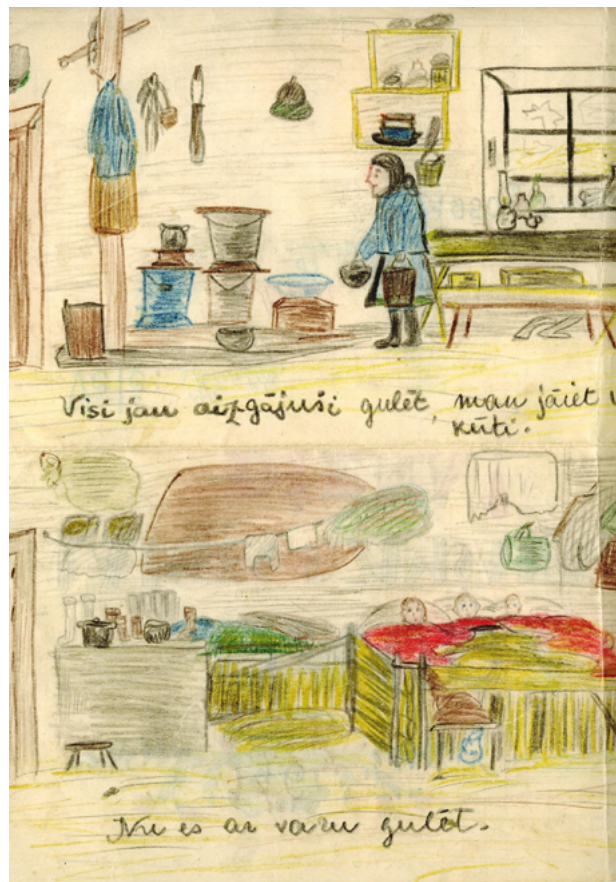 Visi jau aizgājuši gulēt, man jāiet
kūti.
Nu es ar varu gulēt.